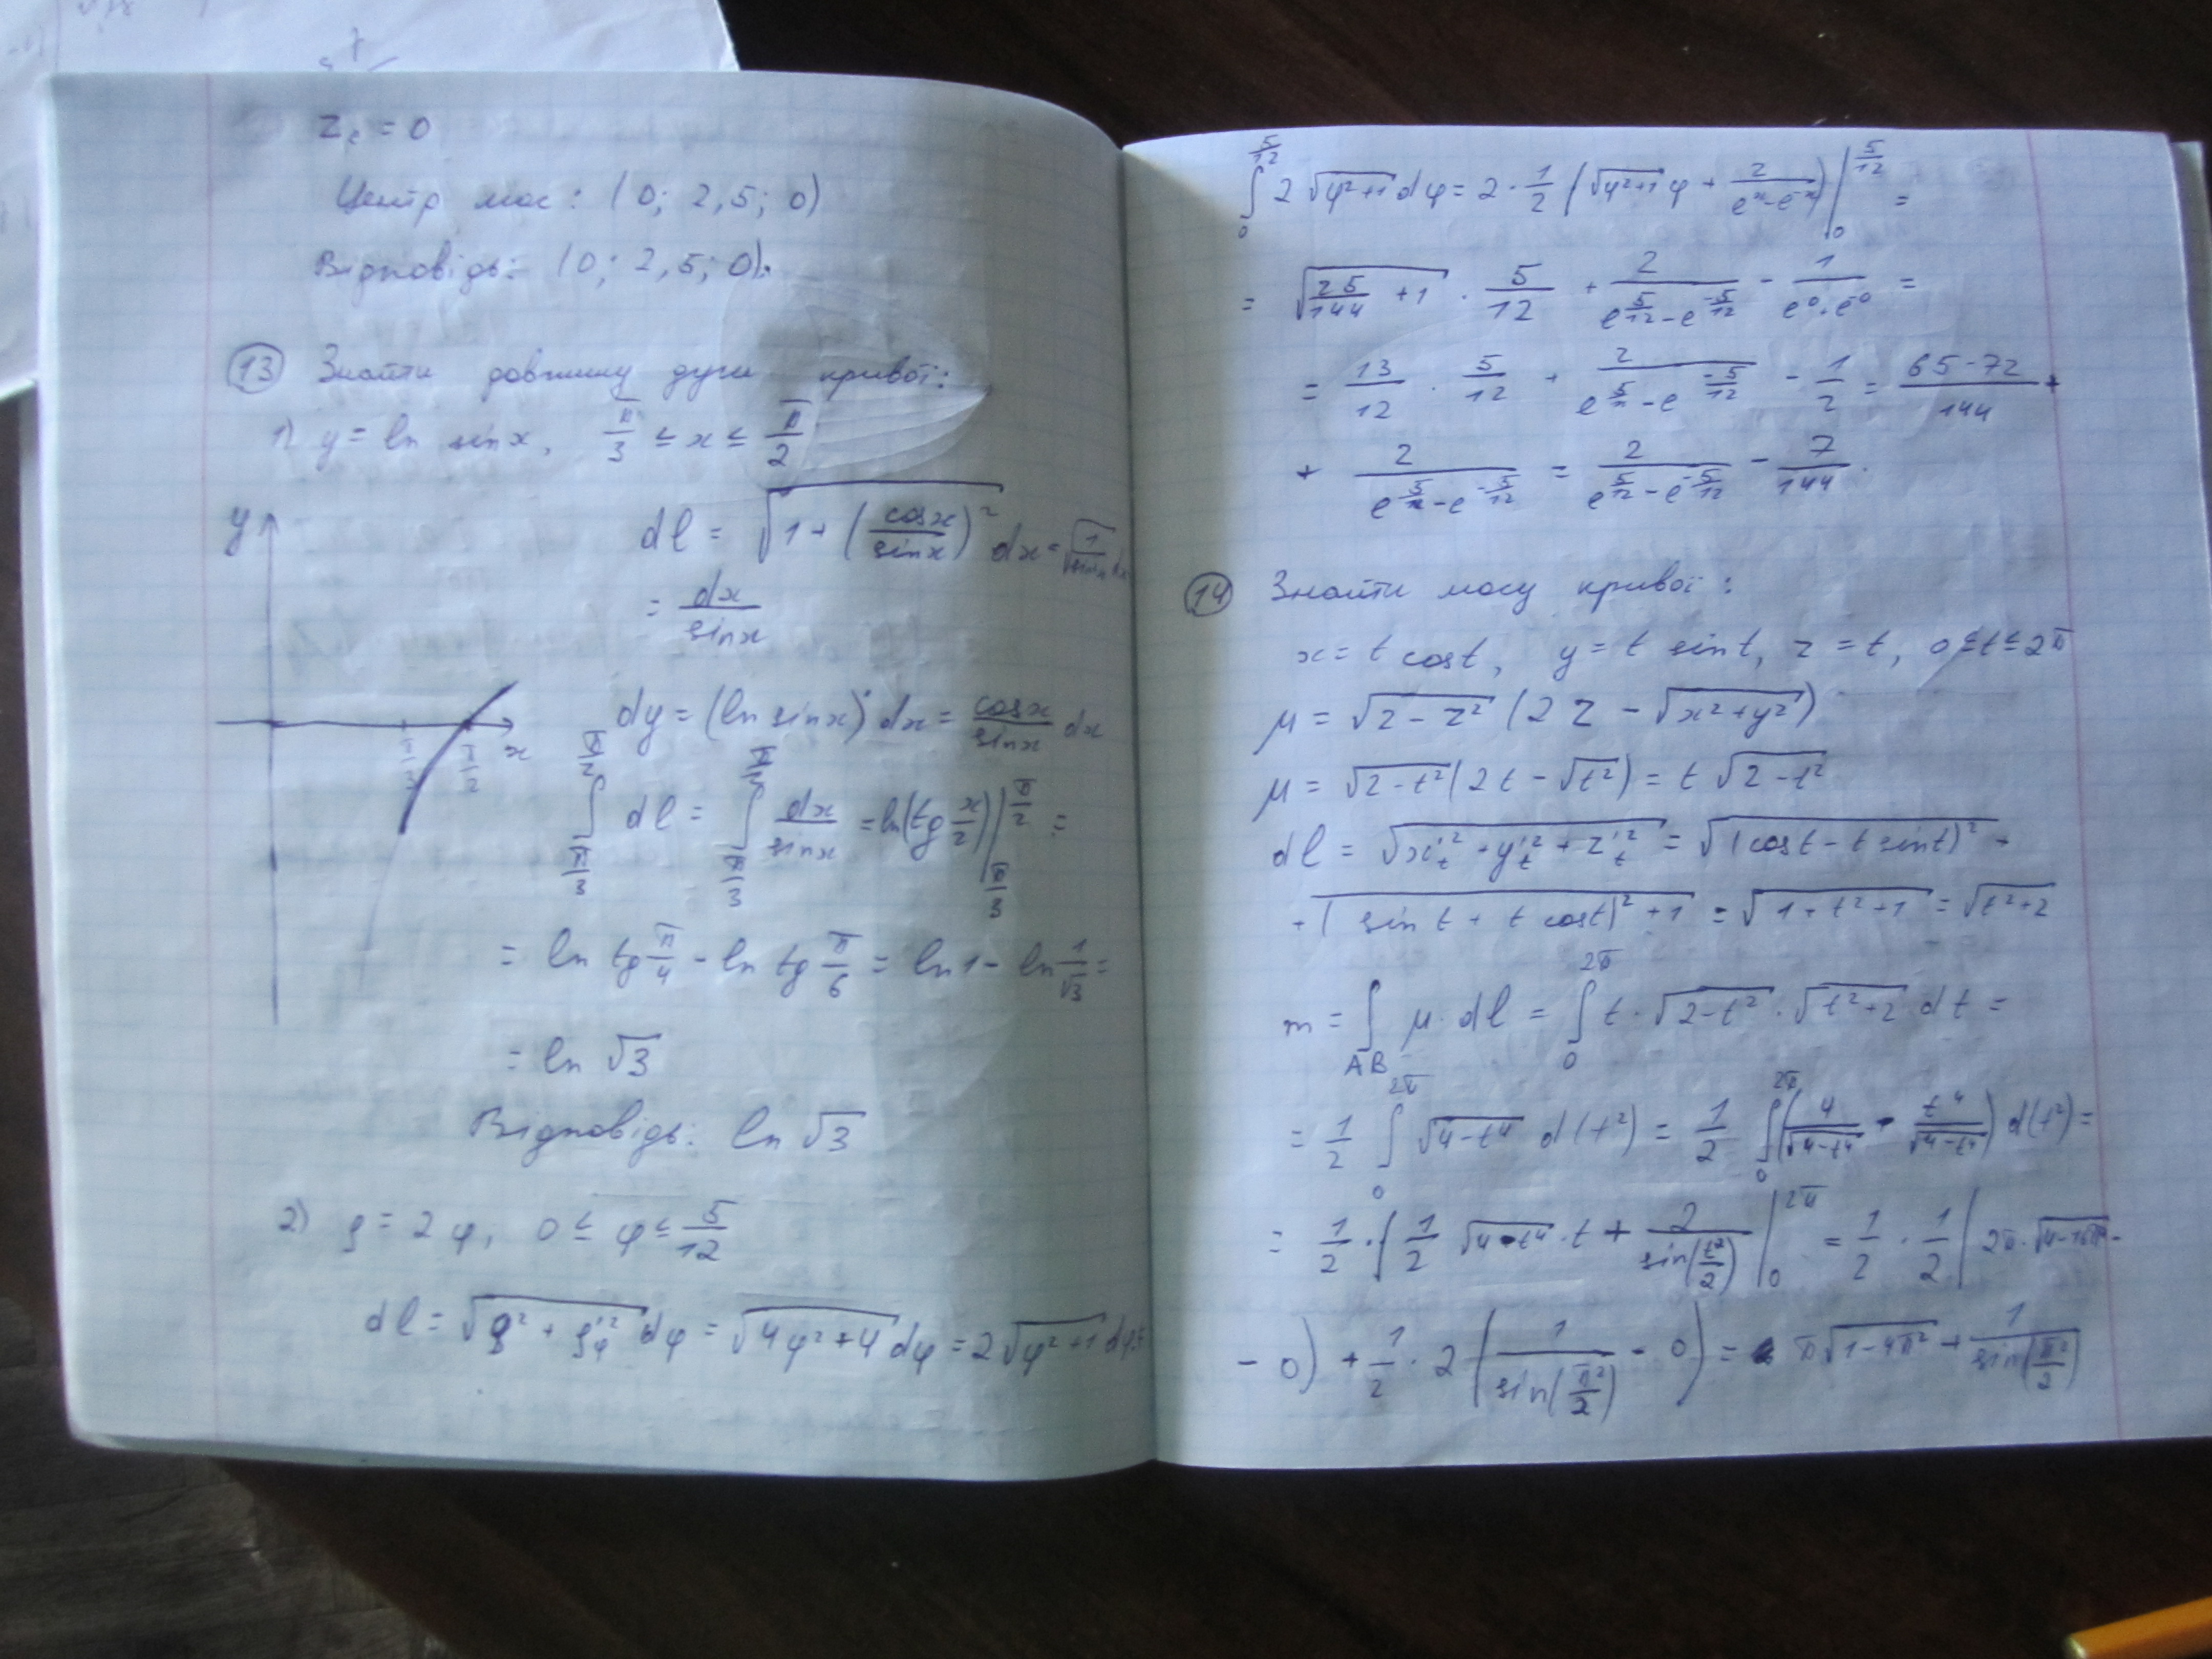 z_c = 0
Центр мас: (0; 2,5; 0)
Відповідь: (0; 2,5; 0).
13 Знайти довжину дуги кривої:
1) y = ln sin x, π/3 ≤ x ≤ π/2
y
dl = √(1 + (cos x / sin x)²) dx =
= dx / sin x
dy = (ln sin x)' dx = cos x / sin x dx
π/3 π/2 x
∫_{π/3}^{π/2} dl = ∫_{π/3}^{π/2} dx / sin x = ln(tg x/2) |_{π/3}^{π/2} =
= ln tg π/4 - ln tg π/6 = ln 1 - ln 1/√3 =
= ln √3
Відповідь: ln √3
2) ρ = 2φ, 0 ≤ φ ≤ 5/12
dl = √(ρ² + ρ'_φ²) dφ = √(4φ² + 4) dφ = 2√(φ² + 1) dφ
∫_0^{5/12} 2√(φ²+1) dφ = 2 · 1/2 (√(φ²+1) φ + 2/(e^x - e^{-x})) |_0^{5/12} =
= √(25/144 + 1) · 5/12 + 2/(e^{5/12} - e^{-5/12}) - 1/(e^0 · e^{-0}) =
= 13/12 · 5/12 + 2/(e^{5/12} - e^{-5/12}) - 1/2 = (65 - 72)/144 +
+ 2/(e^{5/12} - e^{-5/12}) = 2/(e^{5/12} - e^{-5/12}) - 7/144.
14 Знайти масу кривої:
x = t cos t, y = t sin t, z = t, 0 ≤ t ≤ 2π
μ = √(2 - z²) (2z - √(x² + y²))
μ = √(2 - t²) (2t - √(t²)) = t √(2 - t²)
dl = √(x'_t² + y'_t² + z'_t²) = √((cos t - t sin t)² +
+ (sin t + t cos t)² + 1) = √(1 + t² + 1) = √(t² + 2)
m = ∫_{AB} μ · dl = ∫_0^{2π} t · √(2 - t²) · √(t² + 2) dt =
= 1/2 ∫_0^{2π} √(4 - t⁴) d(t²) = 1/2 ∫_0^{2π} (4/√(4 - t⁴) - t⁴/√(4 - t⁴)) d(t²) =
= 1/2 · (1/2 √(4 - t⁴) · t + 2/sin(t²/2)) |_0^{2π} = 1/2 · 1/2 (2π · √(4 - 16π⁴) -
- 0) + 1/2 · 2 (1/sin(π²/2) - 0) = π√(1 - 4π²) + 1/sin(π²/2)